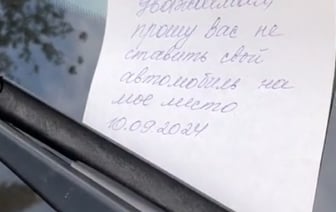 прошу вас не
ставить свой
автомобиль на
мое место
10.09.2024